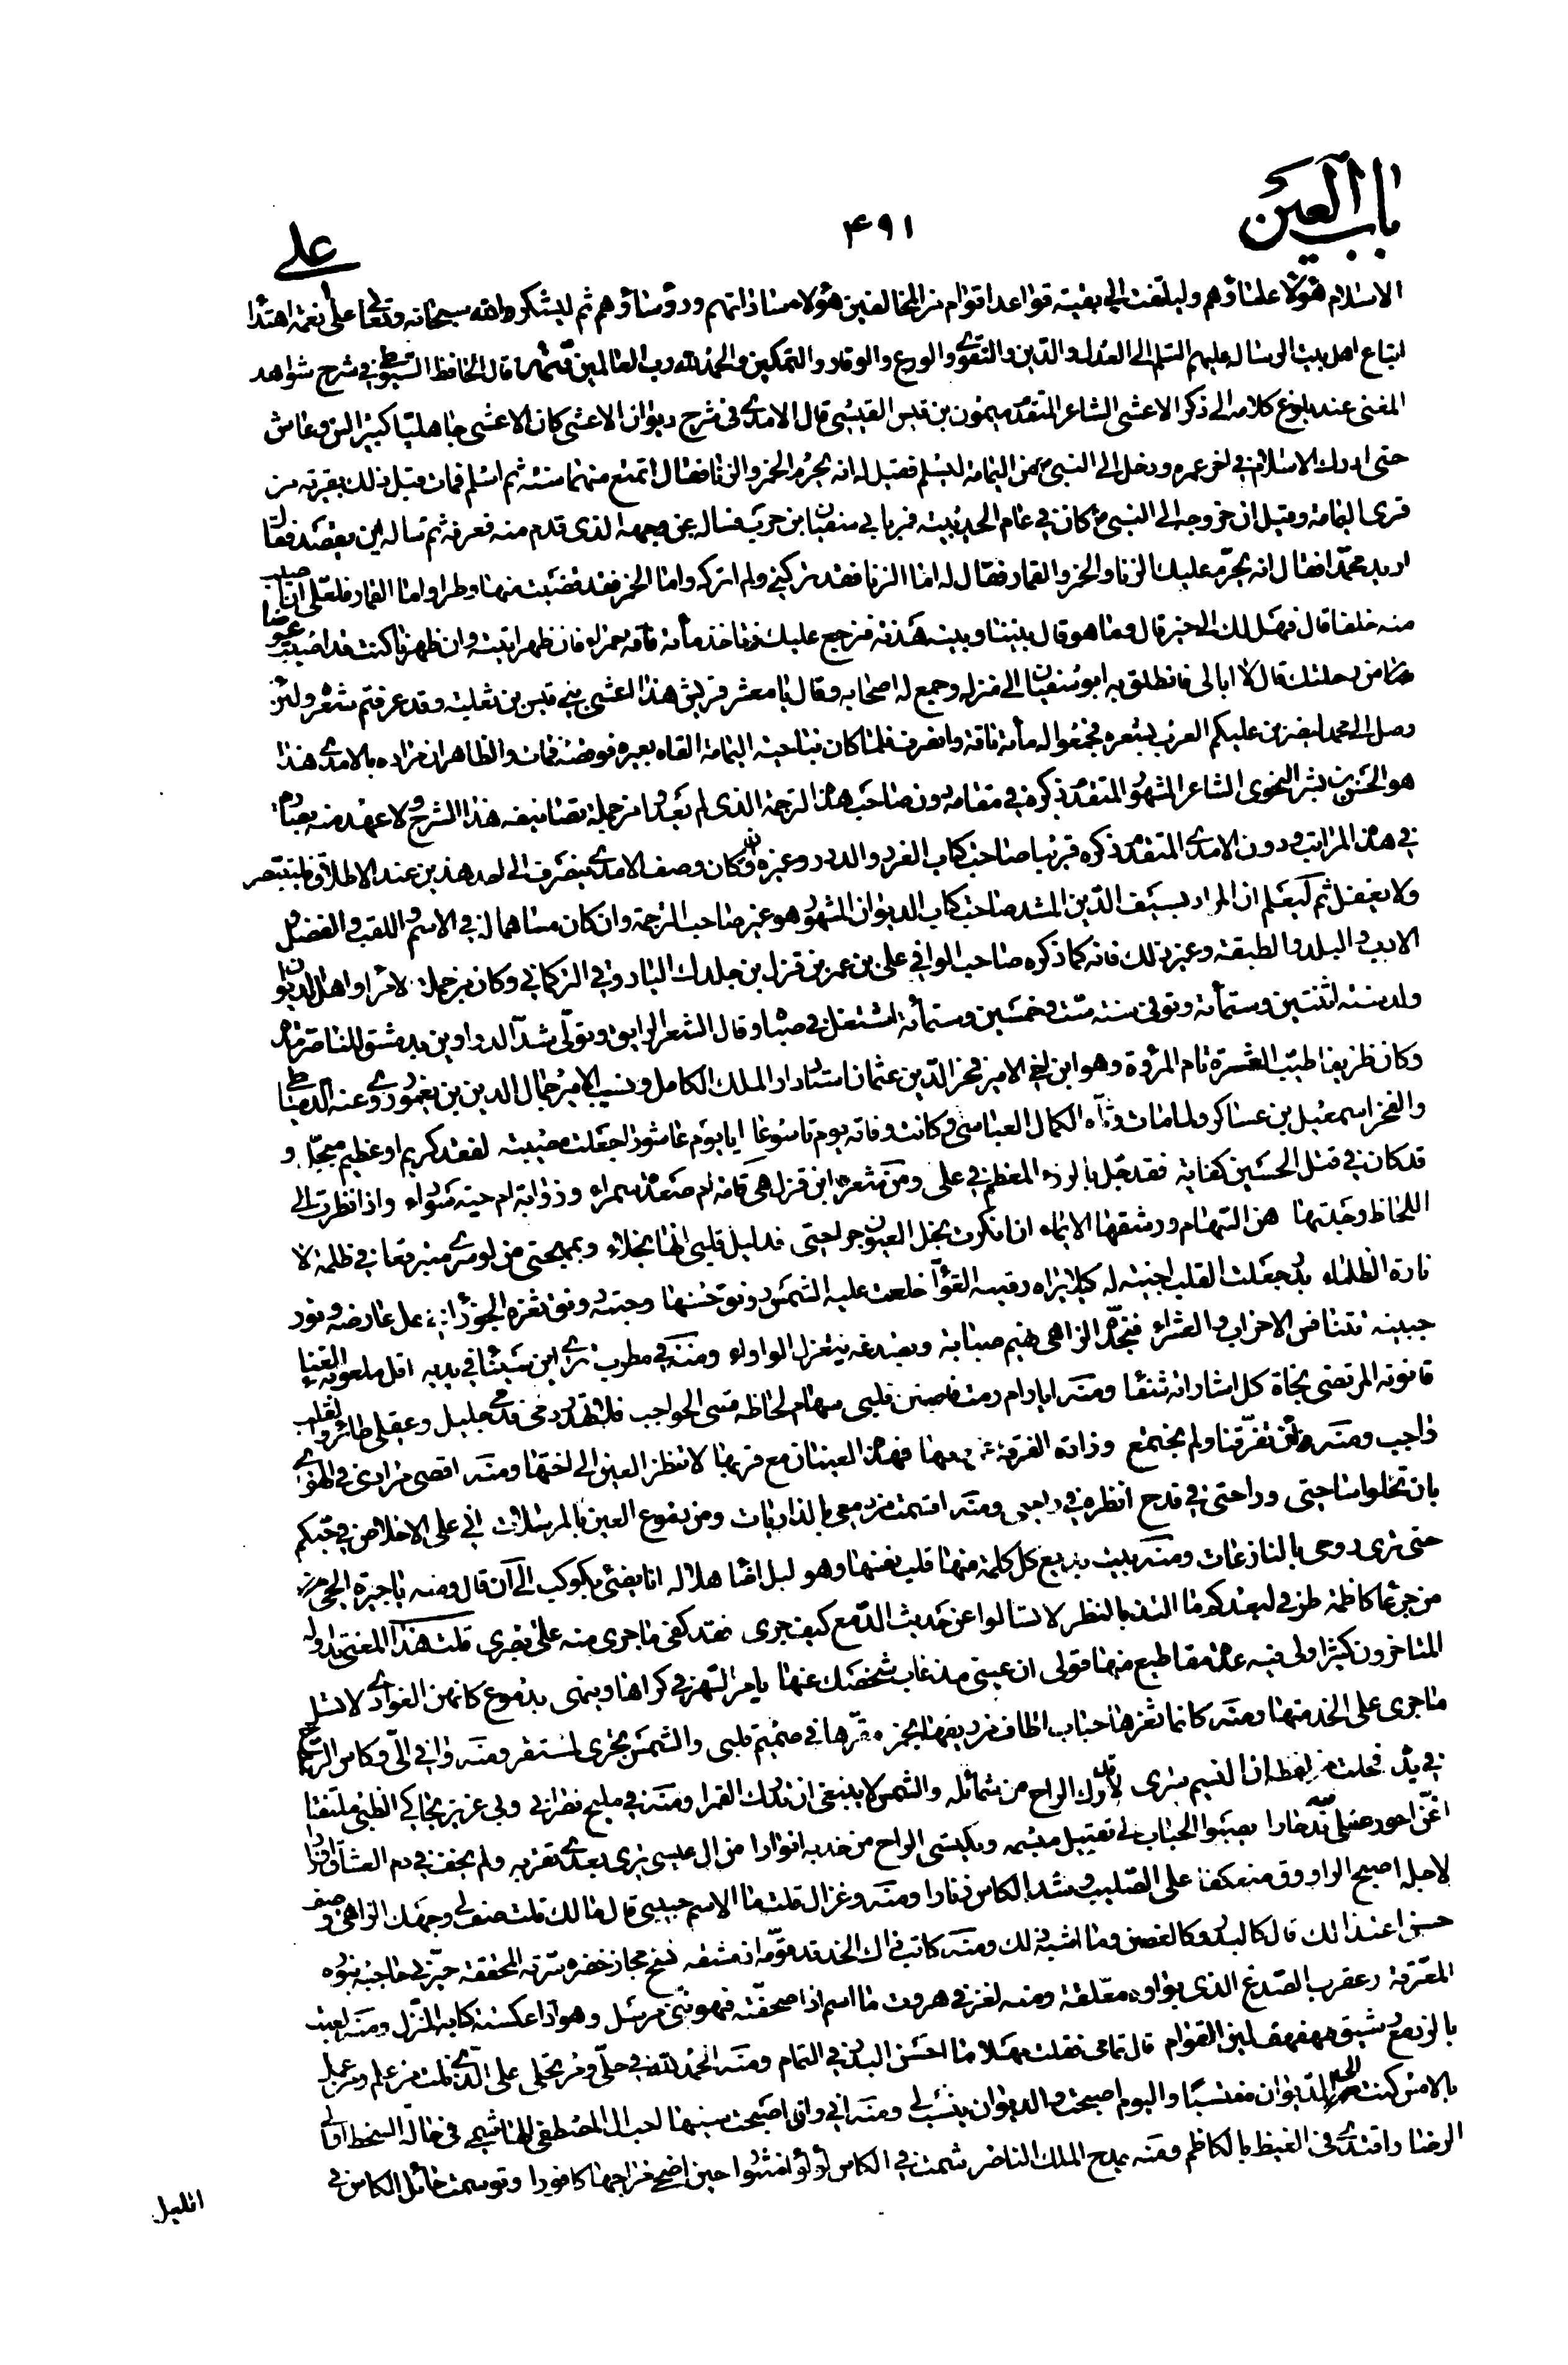 باب العين
۴۹۱
علی
الاسلام هؤلاء علماؤهم وليلتفت الى بقية قواعد اقوام من المخالفين هؤلا ساداتهم ورؤساؤهم ثم ليشكروا الله سبحانه وتعالى على نعمة اهتدا
اتباع اهل بيت الرسالة عليهم السلم الى العدل والدين والتقوى والورع والوقار والتمكين والحمد لله رب العالمين قال الحافظ السيوطى فى شرح شواهد
المغنى عند بلوغ كلامه الى ذكر الاعشى الشاعر المتقدم ميمون بن قيس القيسى قال الامدى فى شرح ديوان الاعشى كان الاعشى جاهليا كبير السن وعاش
حتى ادرك الاسلام فى اخر عمره ورحل الى النبى من اليمامة ليسلم فقيل له انه يحرم الخمر والزنا فقال اتمتع منهما سنة ثم اسلم فمات قبل ذلك بقرية من
قرى اليمامة وقيل ان خروجه الى النبى كان فى عام الحديبية فمر بابى سفيان بن حرب فساله عن وجهه الذى قدم منه فعرفه ثم ساله اين يقصد فقال
اريد محمدا فقال انه يحرم عليك الزنا والخمر والقمار فقال له اما الزنا فقد تركنى ولم اتركه واما الخمر فقد قضيت منها وطرا واما القمار فلعلى ان اصيب
منه خلفا قال فهل لك الى خير قال وما هو قال بيننا وبينه هدنة فترجع عليك وتاخذ مأة ناقة حمراء فان ظهر اتيته وان ظهرنا كنت قد اصبت عوضا
من رحلتك قال لا ابالى فانطلق به ابو سفيان الى منزله وجمع له اصحابه وقال يا معشر قريش هذا اعشى بنى قيس بن ثعلبة وقد عرفتم شعره ولئن
وصل الى محمد ليضربن عليكم العرب بشعره فجمعوا له مأة ناقة وانصرف فلما كان بناحية اليمامة القاه بعيره فوقصه فمات والظاهر ان مراده بالامدى هذا
هو الحسن بن بشر النحوى الشاعر المشهور المتقدم ذكره فى مقامه دون صاحب هذه الترجمة الذى لم يعد من جملة تصانيفه هذا الشرح ولا عهد منه
فى هذه المراتب ودون الامدى المتقدم ذكره قريبا صاحب كتاب الغرر والدرر وغيره وان كان وصف الامدى ينصرف الى احد هذين عند الاطلاق فليتبصر
ولا يغفل ثم ليعلم ان المراد بسيف الدين المشد صاحب كتاب الديوان المشهور هو غير صاحب الترجمة وان كان مساهما له فى الاسم واللقب والفضل
الادب والبلد والطبقة وغير ذلك فانه كما ذكره صاحب الوافى على بن عمر بن قزل بن جلدك الياروقى التركمانى وكان من جملة الامراء واهل الديوان
ولد سنة اثنتين وستمأة وتوفى سنة ست وخمسين وستمأة اشتغل فى صباه وقال الشعر الرايق وتولى شد الدواوين بدمشق للناصر
وكان ظريفا طيب العشرة تام المروة وهو ابن اخى الامير فخر الدين عثمان استادار الملك الكامل ونسيب الامير جمال الدين بن يغمور وروى عنه الدمياطى
والفخر اسمعيل بن عساكر ولما مات رثاه الكمال العباسى وكانت وفاته يوم تاسوعا ايا يوم عاشورا جعلت مصيبة لفقد كريم او عظيم مبجل و
قد كان فى قتل الحسين كفاية فقد جل بالرزء المعظم فى على ومن شعر ابن قزل هى قامة ام صعدة سمراء وذؤابة ام حية سوداء واذا نظرت الى
اللحاظ وجدتها هن السهام ورشقها الايماء ان انكرت نجل العيون جراحتى فدليل قلبى انها نجلاء وبمهجتى من لو سرى متبرقعا فى ظلمة لا
نارة الظلماء بدر جعلت القلب اخبية له كيلا يراه رقيبه العواء خلعت عليه الشمس رونق حسنها وحبته رونق ثغره الجوزاء على عارضه ونور
جبينه تتنافس الاحزاب والشعراء فبخده الزاهى يهيم صبابة وبصدغه يتغزل الواواء ومنه فى مطرب ترى ابن سينا فى يديه اقل ملعوبه الغناء
قانونه المرتضى نجاة كل اشاراته شفا ومنه ايا رام رمت قلبى سهام لحاظه قسى الحواجب فدمعى جليل وعقلى طائر والقلب
ذاجب ومنه تفرقنا ولم نجتمع وزادت الفرقة فهذه العينان مع قربها لا تنظر العين الى اختها ومنه اقصى مرادى فى الهوى
بان تحلوا ساحتى وراحتى فى قدح انظره فى راحتى ومنه اقسمت من دمعى بالذاريات ومن دموع العين بالمرسلات انى على الاخلاص فى حبكم
حتى ترى روحى بالنازعات ومنه بيت بديع كل كلمة منها قلب نفسها وهو ليل اضا هلاله انا يضئى بكوكب الى آن قال ومنه يا جيرة الحى
من جرعا كاظمة طرفى لبعدكم ما التذ بالنظر لا تسالوا عن حديث الدمع كيف جرى فقد كفى ما جرى منه على بصرى قلت هذا المعنى تداوله
المتاخرون كثيرا ولى فيه عدة مقاطيع منها قولى ان عينى مذ غاب شخصك عنها يامر السهد فى كراها وينهى بدموع كانهن الغوادى لا تسل
ما جرى على الخد منها ومنه كانما ثغرها حباب اطاف من ريقها بخمره مقرها فى صميم قلبى والشمس تجرى لمستقر ومنه وافى الى وكاس الراح
فى يده فخلت من لفظه ان النسيم سرى لا تدرك الراح من شمائله والشمس لا ينبغى ان تدرك القمرا ومنه فى مليح نصرانى وبى غرير يحاكى الظبى ملتفتا
اغن احور يصبو الحباب لى تقبيل مبسمه ويكتسى الراح من خديه انوارا من ال عيسى يرى بعدى تقربه ولم يخف فى دم العشاق
لاجله اصبح الراووق منعكفا على الصليب وشد الكاس زنارا ومنه وغزال قلت ما الاسم حبيبى قال مالك قلت صف لى وجهك الزاهى وصف
حسن اعتدالك قال كالبدر وكالغصن وما اشبه ذلك ومنه كاتب ذاك الخد قد قومه اذ مشقه نسخ مجاز خضره المحققة حير بى حاجبه بنونه
المعرقة وعقرب الصدغ الذى بواوه معلقة ومنه لغز فى هروت ما اسم اذا صحفته فهو نبى مرسل وهو اذا عكسته كتابه المنزل ومنه لعبت
بالنرد مع شيق مهفهف لين القوام قال تماعى فقلت مهلا ما احسن البدر فى التمام ومنه الحمد لله فى حلى ومرتحلى على الذى نلت من علم ومن عمل
بالامس كنت الى الديوان منتسبا واليوم اصبحت والديوان ينسب لى ومنه انى وان اصبحت سنيها لحب ال المصطفى الهاشمى فى حالة السخط اوالى
الرضا واقتدى فى الغيظ بالكاظم ومنه يمدح الملك الناصر شمت فى الكاس لؤلؤا منثورا حين اضحى مزاجها كافورا وتوسمت خامل الكاس فى
الليل